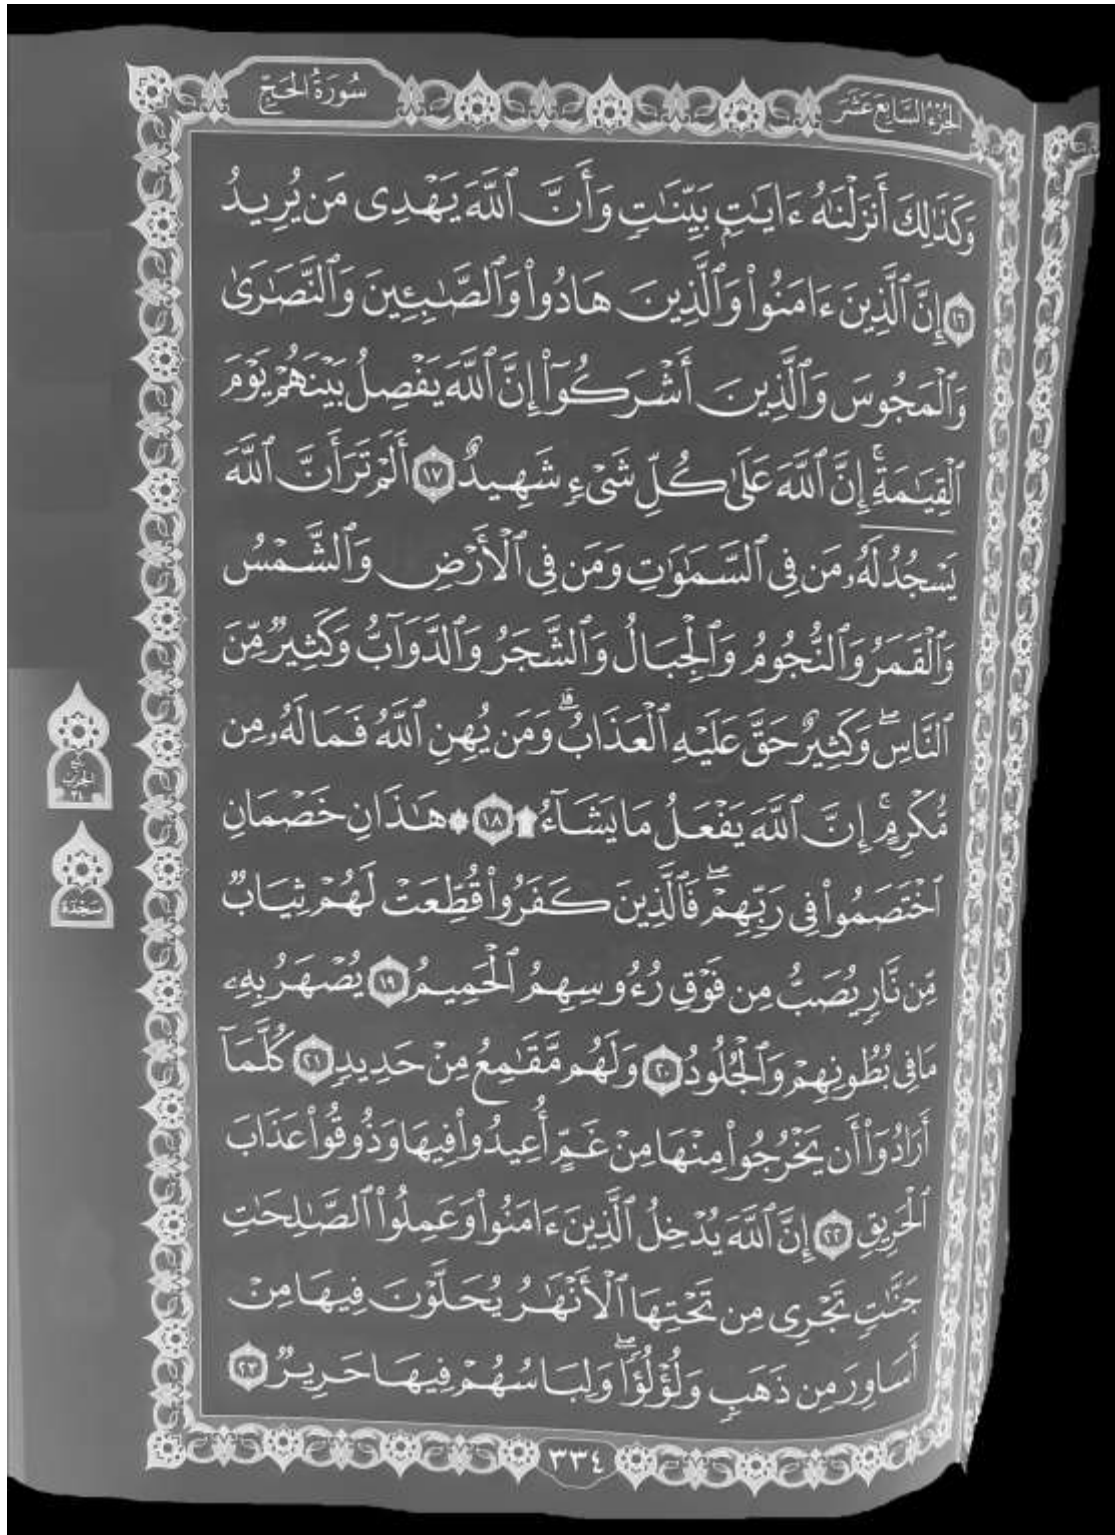 الجزء السابع عشر
سورة الحج
وَكَذَٰلِكَ أَنزَلْنَٰهُ ءَايَٰتٍۭ بَيِّنَٰتٍ وَأَنَّ ٱللَّهَ يَهْدِى مَن يُرِيدُ
١٦ إِنَّ ٱلَّذِينَ ءَامَنُوا۟ وَٱلَّذِينَ هَادُوا۟ وَٱلصَّٰبِـِٔينَ وَٱلنَّصَٰرَىٰ
وَٱلْمَجُوسَ وَٱلَّذِينَ أَشْرَكُوٓا۟ إِنَّ ٱللَّهَ يَفْصِلُ بَيْنَهُمْ يَوْمَ
ٱلْقِيَٰمَةِۚ إِنَّ ٱللَّهَ عَلَىٰ كُلِّ شَىْءٍ شَهِيدٌ ١٧ أَلَمْ تَرَ أَنَّ ٱللَّهَ
يَسْجُدُ لَهُۥ مَن فِى ٱلسَّمَٰوَٰتِ وَمَن فِى ٱلْأَرْضِ وَٱلشَّمْسُ
وَٱلْقَمَرُ وَٱلنُّجُومُ وَٱلْجِبَالُ وَٱلشَّجَرُ وَٱلدَّوَآبُّ وَكَثِيرٌ مِّنَ
ٱلنَّاسِۖ وَكَثِيرٌ حَقَّ عَلَيْهِ ٱلْعَذَابُۗ وَمَن يُهِنِ ٱللَّهُ فَمَا لَهُۥ مِن
مُّكْرِمٍۚ إِنَّ ٱللَّهَ يَفْعَلُ مَا يَشَآءُ ۩ ١٨ ۞ هَٰذَانِ خَصْمَانِ
ٱخْتَصَمُوا۟ فِى رَبِّهِمْۖ فَٱلَّذِينَ كَفَرُوا۟ قُطِّعَتْ لَهُمْ ثِيَابٌ
مِّن نَّارٍ يُصَبُّ مِن فَوْقِ رُءُوسِهِمُ ٱلْحَمِيمُ ١٩ يُصْهَرُ بِهِۦ
مَا فِى بُطُونِهِمْ وَٱلْجُلُودُ ٢٠ وَلَهُم مَّقَٰمِعُ مِنْ حَدِيدٍ ٢١ كُلَّمَآ
أَرَادُوٓا۟ أَن يَخْرُجُوا۟ مِنْهَا مِنْ غَمٍّ أُعِيدُوا۟ فِيهَا وَذُوقُوا۟ عَذَابَ
ٱلْحَرِيقِ ٢٢ إِنَّ ٱللَّهَ يُدْخِلُ ٱلَّذِينَ ءَامَنُوا۟ وَعَمِلُوا۟ ٱلصَّٰلِحَٰتِ
جَنَّٰتٍ تَجْرِى مِن تَحْتِهَا ٱلْأَنْهَٰرُ يُحَلَّوْنَ فِيهَا مِنْ
أَسَاوِرَ مِن ذَهَبٍ وَلُؤْلُؤًاۖ وَلِبَاسُهُمْ فِيهَا حَرِيرٌ ٢٣
ربع
الحزب
٣٤
سجدة
٣٣٤